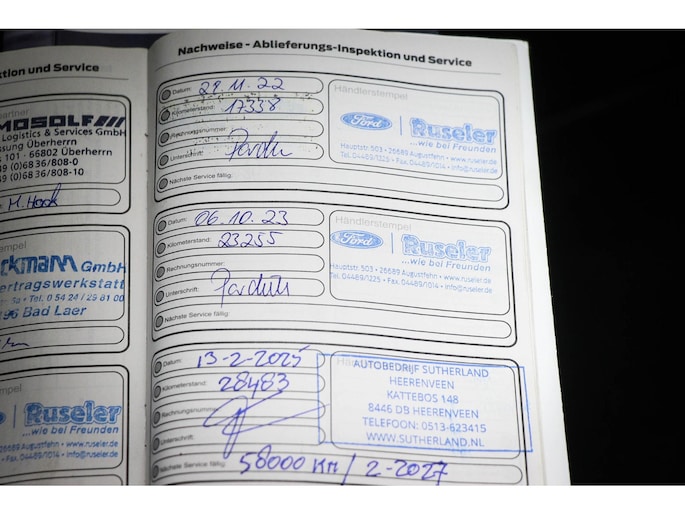 ktion und Service
MOSOLF
Logistics & Services GmbH
ssung Überherrn
101 - 66802 Überherrn
49 (0)68 36/808-0
49 (0)68 36/808-10
M. Hock
empel
ckmann GmbH
ertragswerkstatt
Tel. 0 54 24 / 29 81 00
96 Bad Laer
tempel
Ruseler
...wie bei Freunden
26689 Augustfehn • www.ruseler.de
• Fax. 04489/1014 • info@ruseler.de
Nachweise - Ablieferungs-Inspektion und Service
Datum: 29.11.22
Kilometerstand: 17338
Rechnungsnummer:
Unterschrift:
Nächste Service fällig:
Händlerstempel
Ford
Ruseler
...wie bei Freunden
Hauptstr. 503 • 26689 Augustfehn • www.ruseler.de
Tel. 04489/1225 • Fax. 04489/1014 • info@ruseler.de
Datum: 06.10.23
Kilometerstand: 23255
Rechnungsnummer:
Unterschrift:
Nächste Service fällig:
Händlerstempel
Ford
Ruseler
...wie bei Freunden
Hauptstr. 503 • 26689 Augustfehn • www.ruseler.de
Tel. 04489/1225 • Fax. 04489/1014 • info@ruseler.de
Datum: 13-2-2025
Kilometerstand: 28483
Rechnungsnummer:
Unterschrift:
Nächste Service fällig: 58000 KM / 2-2027
AUTOBEDRIJF SUTHERLAND
HEERENVEEN
KATTEBOS 148
8446 DB HEERENVEEN
TELEFOON: 0513-623415
WWW.SUTHERLAND.NL